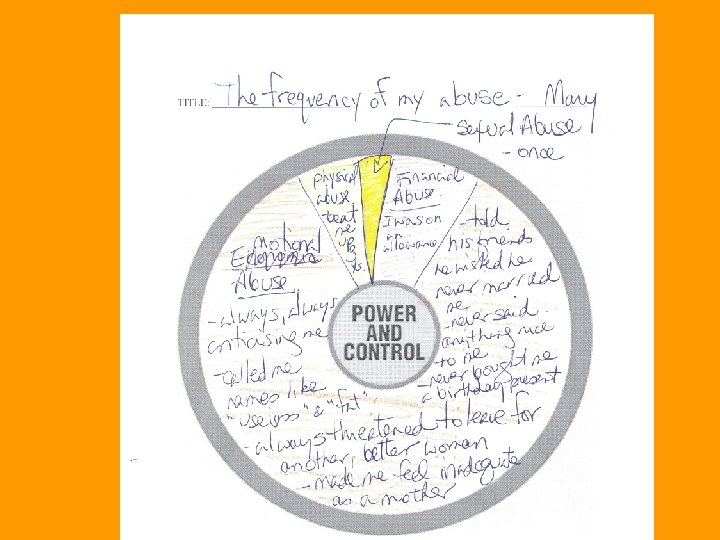 TITLE: The frequency of my abuse - Mary
sexual Abuse
- once
physical
abuse
- beat
me
up
Financial
Abuse
I was on
an
allowance
Emotional
Abuse
- always, always
criticising me
- called me
names like
"useless" & "fat"
- always threatened to leave for
another, better woman
- made me feel inadequate
as a mother
- told
his friends
he wished he
never married
me
- never said
anything nice
to me
- never bought me
a birthday present
POWER
AND
CONTROL